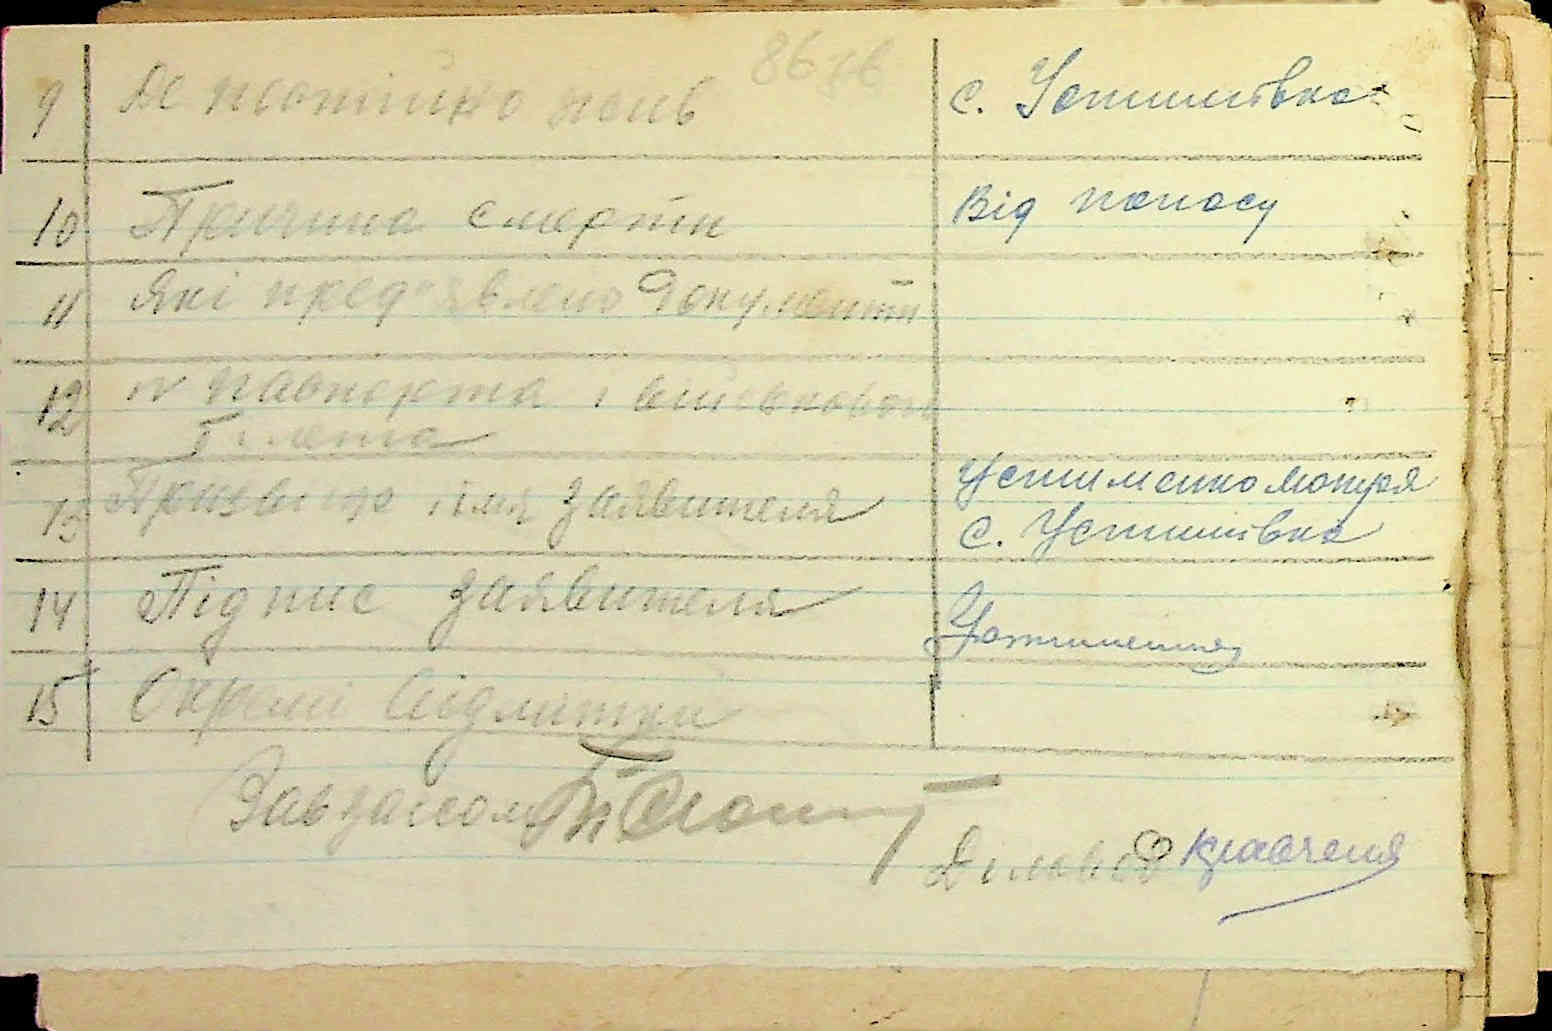 86 зв
9 Де постійно жив с. Устимівка
10 Причина смерти Від поносу
11 Які пред'явлено документи
12 № паспорта і військового
білета
13 Призвище імя заявителя Устименко Мотря
с. Устимівка
14 Підпис заявителя Устименко
15 Окремі відмітки
Завзагсом
Діловод Кравченя